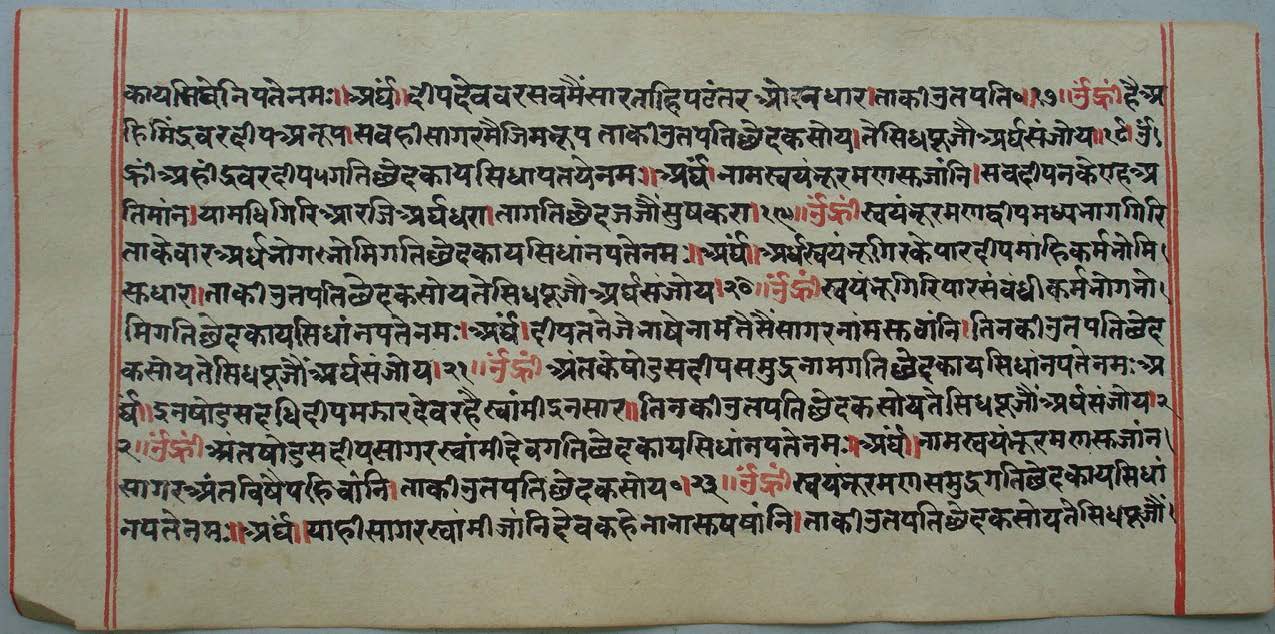 कायसिधेनिपतेनमः॥अर्घ॥दीपदेववरसवमैंसारताहिपटंतरओरनधार।ताकीउतपति०।१७॥ॐह्रींहैअ
हिमिंदुवरदीपअनूप।सवहीसागरमैजिमभूपताकीउतपतिछेदकसोय।तेसिधपूजौंअर्घसंजोय॥१८ॐ
ह्रींअहींदुवरदीपपगतिछेदकायसिधापतयेनमः॥अर्घ॥नामस्वयंभूरमणसुजांनि।सवदीपनकेएहअ
तिमांन।यामधिगिरिआरजिअर्घधरा।तागतिछेदजजौंसुषकरा।१९॥ॐह्रींस्वयंभूरमणद्वीपमध्यनागगिरि
ताकेवारअर्धभोगभोमिगतिछेदकायसिधांनपतेनमः॥अर्घ॥अर्धस्वयंभूगिरकेपारदीपमांहिकर्मभोमि
सुधार॥ताकीउतपतिछेदकसोयतेसिधपूजौंअर्घसंजोय।२०॥ॐह्रींस्वयंभूगिरिपारसंवंधीकर्मभोगभो
मिगतिछेदकायसिधांनपतेनमः।अर्घ॥दीपतनेजेभाषेनामतेसैंसागरनांमसुवांनि।तिनकीउतपतिछेद
कसोयतेसिधपूजौंअर्घसंजोय।२१॥ॐह्रींअंतकेषोडसदीपसमुद्रनामगतिछेदकायसिधांनपतेनमःअ
र्घ॥दुनषोडसदधिदीपमझारदेवरहैस्वांमीदुनसार॥तिनकीउतपतिछेदकसोयतेसिधपूजौंअर्घसंजोय।२
२॥ॐह्रींअंतषोडसदीपसागरस्वांमीदेवगतिछेदकायसिधांनपतेनमः।अर्घ॥नामस्वयंभूरमणसुजांन
सागरअंतविषैपहिचांनि।ताकीउतपतिछेदकसोय०।२३॥ॐह्रींस्वयंभूरमणसमुद्रगतिछेदकायसिधां
नपतेनमः॥अर्घ॥याहीसागरस्वांमीजांनिदेवकहेनानासुषषांनि।ताकीउतपतिछेदकसोयतेसिधपूजौं